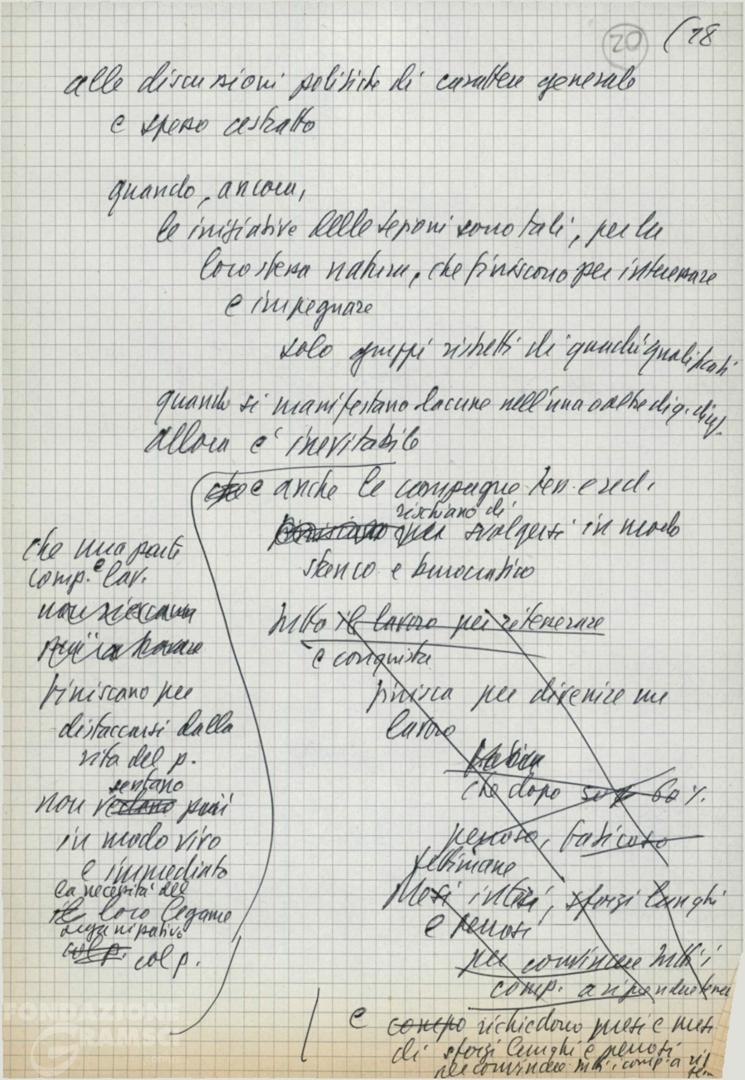 20 (28
alle discussioni politiche di carattere generale
e spesso astratto
quando, ancora,
le iniziative delle sezioni sono tali, per la
loro stessa natura, che finiscono per interessare
e impegnare
solo gruppi ristretti di quadri qualificati
quando si manifestano lacune nell'una o altra di q. dir.
allora è inevitabile
che una parte
comp. e lav.
non
finiscano per
distaccarsi dalla
vita del p.
sentano
non vedano più
in modo vivo
e immediato
la necessità del
il loro legame
organizzativo
col p. col p.
che e anche le campagne tess. e recl.
rischiano di
per svolgersi in modo
stanco e burocratico
tutto il lavoro per ritesserare
e conquista
finisca per divenire un
lavoro
che dopo 50 60 %
penoso, faticoso
settimane
Mesi interi, sforzi lunghi
e penosi
per convincere tutti i
comp. a riprendere tessera
e compo richiedono mesi e mesi
di sforzi lunghi e penosi
per convincere tutti i comp. a rip.
FONDAZIONE
GRAMSCI